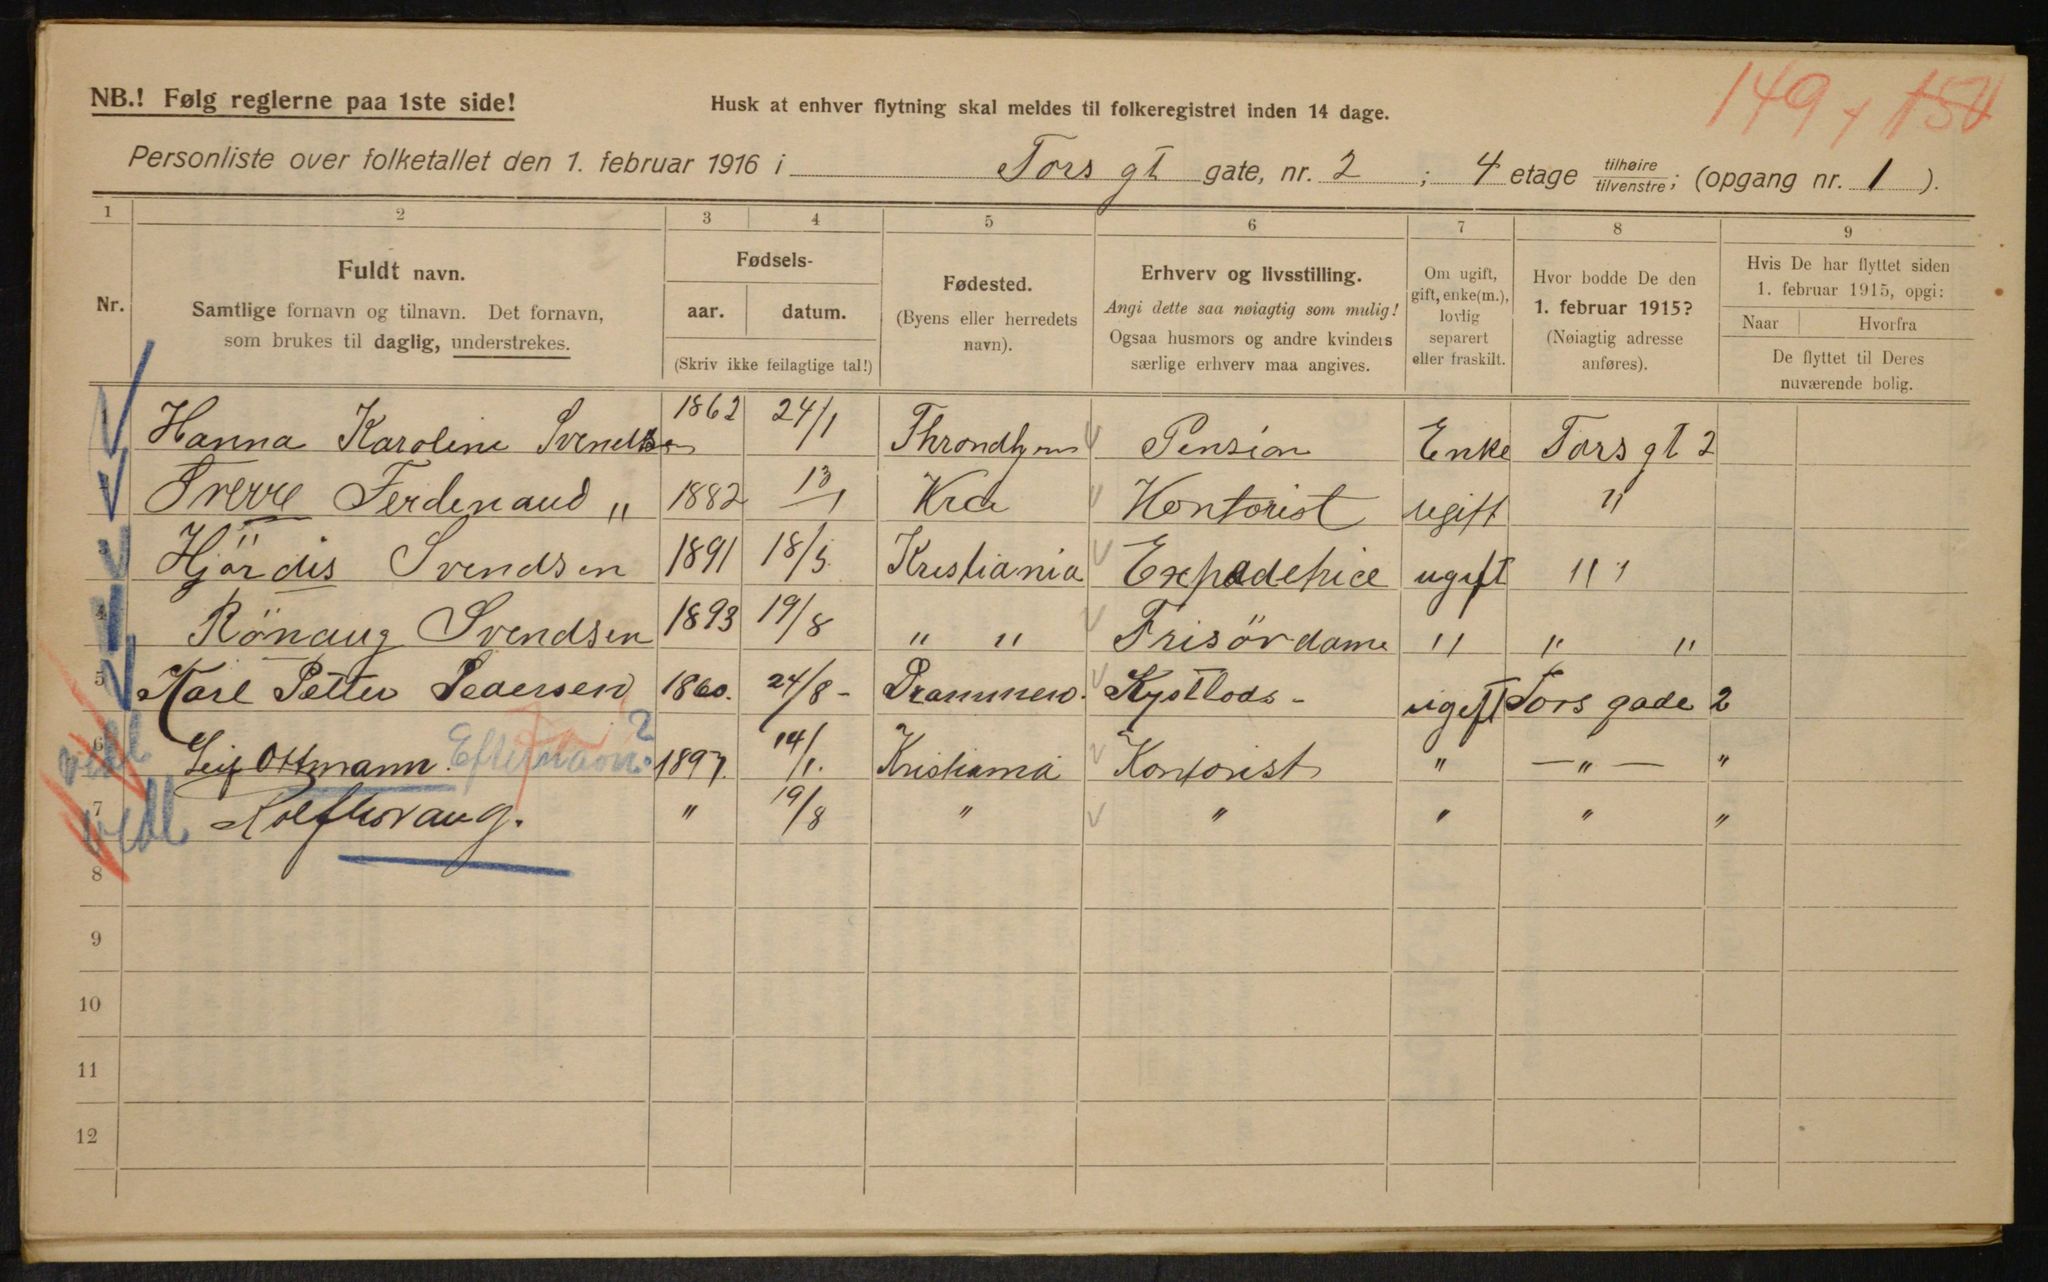 149 + 151
NB.! Følg reglerne paa 1ste side!
Husk at enhver flytning skal meldes til folkeregistret inden 14 dage.
Personliste over folketallet den 1. februar 1916 i Tors gt gate, nr. 2 ; 4 etage tilhøire tilvenstre; (opgang nr. 1 ).
1 2 3 4 5 6 7 8 9
Nr.
Fuldt navn.
Samtlige fornavn og tilnavn. Det fornavn,
som brukes til daglig, understrekes.
Fødsels-
aar. datum.
(Skriv ikke feilagtige tal!)
Fødested.
(Byens eller herredets
navn).
Erhverv og livsstilling.
Angi dette saa nøiagtig som mulig!
Ogsaa husmors og andre kvinders
særlige erhverv maa angives.
Om ugift,
gift, enke(m.),
lovlig
separert
eller fraskilt.
Hvor bodde De den
1. februar 1915?
(Nøiagtig adresse
anføres).
Hvis De har flyttet siden
1. februar 1915, opgi:
Naar Hvorfra
De flyttet til Deres
nuværende bolig.
Hanna Karoline Svendsen 1862 24/1 Throndhjem Pension Enke Tors gt 2
Sverre Ferdenand " 1882 13/1 Kra Kontorist ugift "
Hjördis Svendsen 1891 18/5 Kristiania Expedetrice ugift " "
4 Rönaug Svendsen 1893 19/8 " " Frisördame " " "
5 Karl Petter Pedersen 1860. 24/8 - Drammen. Kystlods - ugift Tors gade 2
6 Leif Ottmann. Efternavn? 1897. 14/1. Kristiania Kontorist " — " — "
7 Rolf Horaug. " 19/8 " " " " "
vedl
vedl
8
9
10
11
12